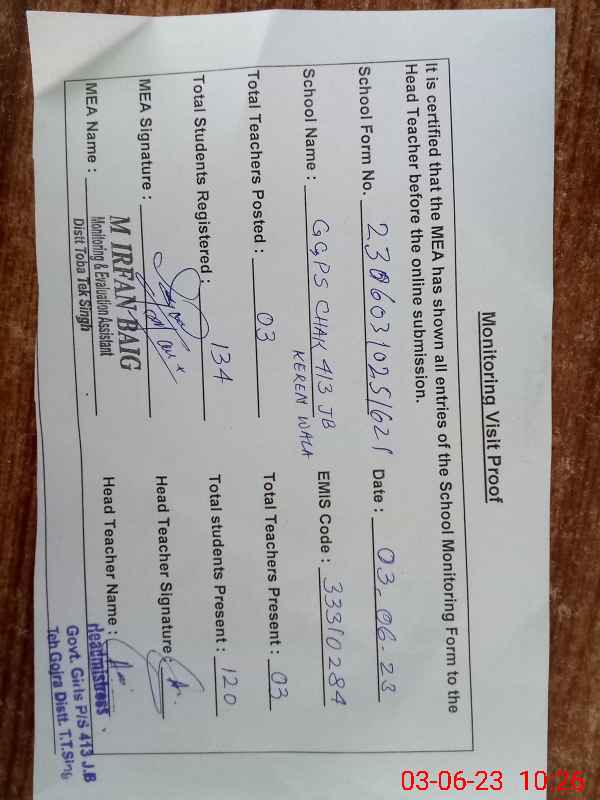 Monitoring Visit Proof
It is certified that the MEA has shown all entries of the School Monitoring Form to the
Head Teacher before the online submission.
School Form No. 23060310251621 Date : 03-06-23
School Name : GGPS CHAK 413 JB EMIS Code : 33310284
KEREN WALA
Total Teachers Posted : 03 Total Teachers Present : 03
Total Students Registered : 134 Total students Present : 120
MEA Signature : Head Teacher Signature :
MEA Name : M IRFAN BAIG Head Teacher Name :
Monitoring & Evaluation Assistant
Distt Toba Tek Singh
Headmistress
Govt. Girls P/S 413 J.B
Teh Gojra Distt. T.T.Sing
03-06-23 10:26